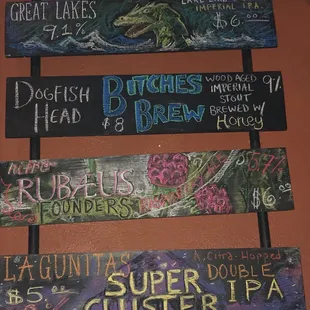 GREAT LAKES
9.1%
IMPERIAL IPA
$6.00
DOGFISH
HEAD
BITCHES
BREW
$8
WOOD AGED
IMPERIAL
STOUT
BREWED W/
HONEY
9%
RUBÆUS
FOUNDERS
5.7%
$6.00
LAGUNITAS
$5.00
SUPER
CLUSTER
A CITRA-HOPPED
DOUBLE
IPA